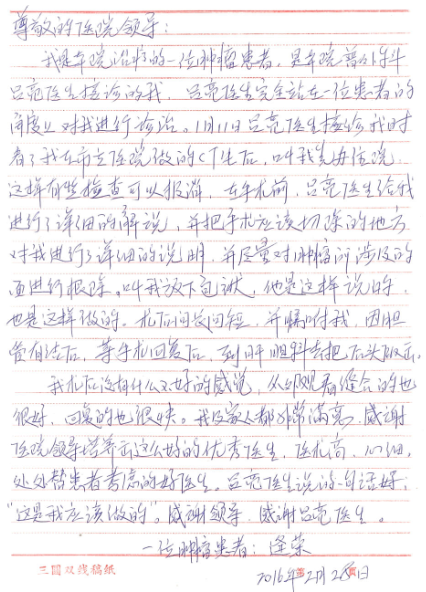 尊敬的医院领导:
我是来院治疗的一位肿瘤患者,是来院普外科
吕亮医生接诊的我,吕亮医生完全站在一位患者的
角度上对我进行诊治。11月11日吕亮医生接诊我时
看了我在市立医院做的CT片后,叫我先办住院,
这样有些检查可以报销,在手术前,吕亮医生给我
进行了详细的解说,并把手术应该切除的地方
对我进行了详细的说明,并尽量对肿瘤所涉及的
面进行根除。叫我放下包袱,他是这样说的,
也是这样做的,术后问长问短,并嘱咐我,因胆
管有结石,等手术回复后,到肝胆科去把石头取出。
我术后没有什么不好的感觉,从外观看缝合的也
很好,回复的也很快。我及家人都非常满意,感谢
医院领导培养出这么好的优秀医生,医术高,心细,
处处替患者考虑的好医生。吕亮医生说的一句话好,
"这是我应该做的"。感谢领导,感谢吕亮医生。
一位肿瘤患者:逄荣
三圆双线稿纸
2016年2月28日